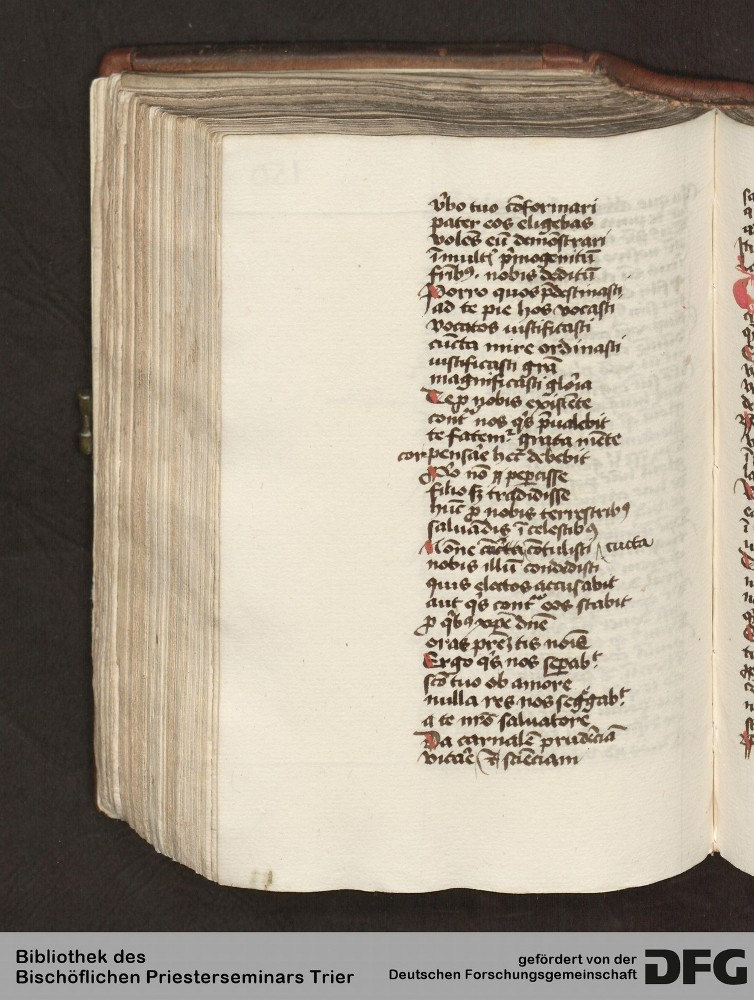 v̓bo tuo cōformari
pater eos eligebas
volēs eū demōstrari
ī mult̄ p̓mogenitū
frībꝰ nobis deditū
Porro quos p̄destinasti
ad te pie hos vocasti
vocatos iustificasti
cūcta mire ordinasti
iustificasti grā
magnificasti glōia
Te ꝓ nobis existēte
cont̄ nos q̓s p̄ualebit
te fatemᷣ grata mēte
cor pensāe hec debebit
non ꝓp̱cisse
filio sꝫ tradidisse
hūc ꝓ nobis terrestribꝰ
saluādis ī celestibꝰ
cōtulisti cūcta
nobis illū condedisti
quis electos accusabit
aut q̓s cont̄ eos stabit
ꝓ q̓bꝰ xp̄e dn̄e
oras p̄rēꝫ tis noīe
Ergo q̓s nos sep̱abᷣt
scō tuo ob amore
nulla res nos seḡgabᷣt
a te nr̄o saluatore
Da carnalē prudēciā
vitāe ⁊ sciēciam
Bibliothek des
Bischöflichen Priesterseminars Trier
gefördert von der
Deutschen Forschungsgemeinschaft
DFG